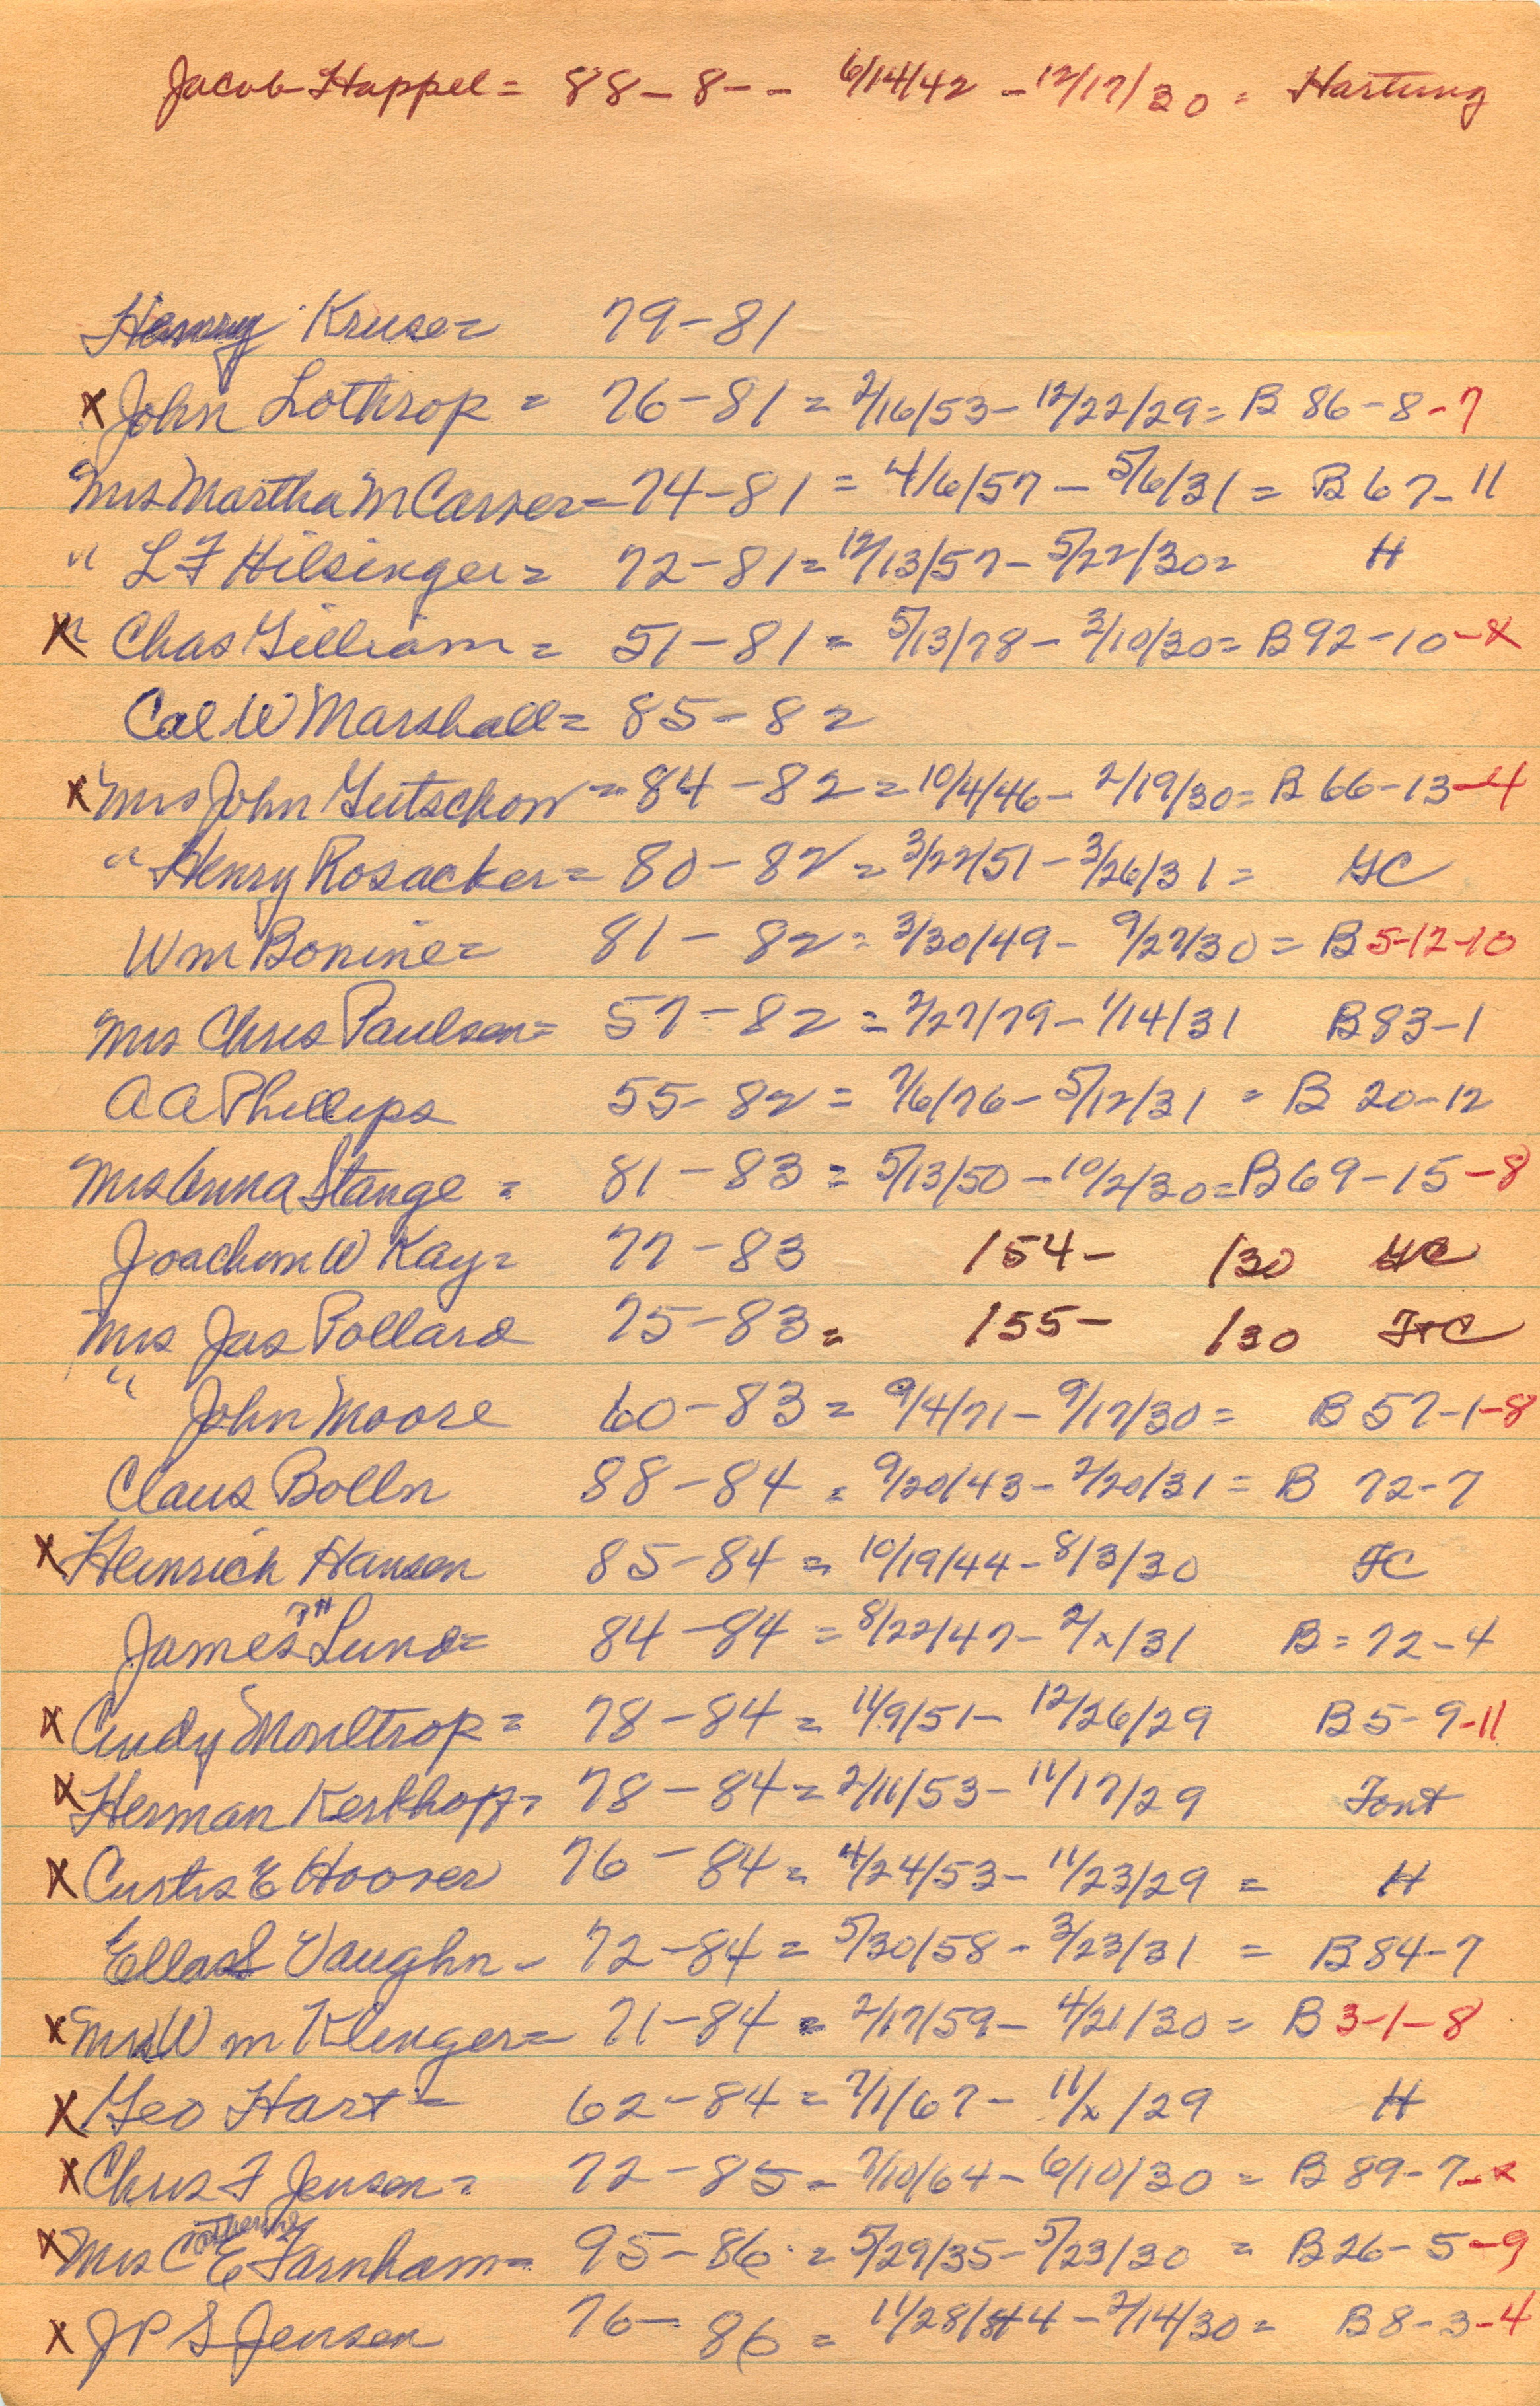 Jacob Happel = 88-8-- 6/14/42 - 12/17/30 = Hartung
Henry Kruse = 79-81
x John Lothrop = 76-81 = 2/16/53 - 12/22/29 = B 86-8-7
Mrs Martha M Carver = 74-81 = 4/6/57 - 5/6/31 = B 67-11
" L F Hilsinger = 72-81 = 12/13/57 - 5/22/30 = H
x " Chas Gilliam = 51-81 = 5/13/78 - 3/10/30 = B 92-10-x
Cal W Marshall = 85-82
x Mrs John Gutschow = 84-82 = 10/4/46 - 2/19/30 = B 66-13-4
" Henry Rosacker = 80-82 = 3/22/51 - 3/26/31 = GC
Wm Bonine = 81-82 = 3/30/49 - 9/27/30 = B 5-12-10
Mrs Chris Paulsen = 57-82 = 2/27/79 - 1/14/31 B 83-1
A A Phillips 55-82 = 7/6/76 - 5/12/31 = B 20-12
Mrs Anna Stange = 81-83 = 5/13/50 - 10/2/30 = B 69-15-8
Joachim W Kay = 77-83 /54- /30 GC
Mrs Jas Pollard 75-83 = /55- /30 FC
" John Moore 60-83 = 9/4/71 - 9/17/30 = B 57-1-8
Claus Bolln 88-84 = 9/20/43 - 2/20/31 = B 72-7
x Heinrich Hansen 85-84 = 10/19/44 - 8/3/30 FC
James Lund = 84-84 = 8/22/47 - 2/x/31 B = 72-4
x Andy Moultrop = 78-84 = 11/9/51 - 12/26/29 B 5-9-11
x Herman Kerkhoff = 78-84 = 2/11/53 - 11/17/29 Font
x Curtis E Hoover 76-84 = 4/24/53 - 11/23/29 = H
Ella S Vaughn - 72-84 = 5/30/58 - 3/23/31 = B 84-7
x Mrs Wm Klinger = 71-84 = 2/17/59 - 4/21/30 = B 3-1-8
x Geo Hart = 62-84 = 7/1/67 - 11/x/29 H
x Chris F Jensen = 72-85 = 7/10/64 - 6/10/30 = B 89-7-x
x Mrs Catherine E Farnham = 95-86 = 5/29/35 - 5/23/30 = B 26-5-9
x J P S Jensen 76-86 = 11/28/44 - 2/14/30 = B 8-3-4